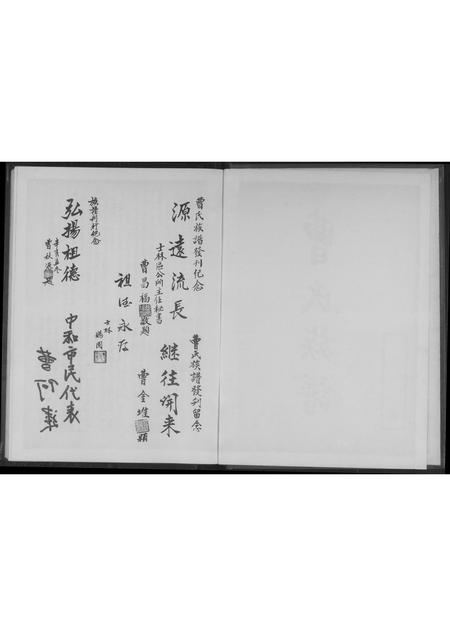 曹氏族譜發刊紀念
源遠流長
士林區公所主任秘書
曹昌福敬題
曹氏族譜發刊留念
繼往開来
曹金堆 題
祖德永存
士林
族譜刊行紀念
弘揚祖德
曹秋源題
中和市民代表
曹阿